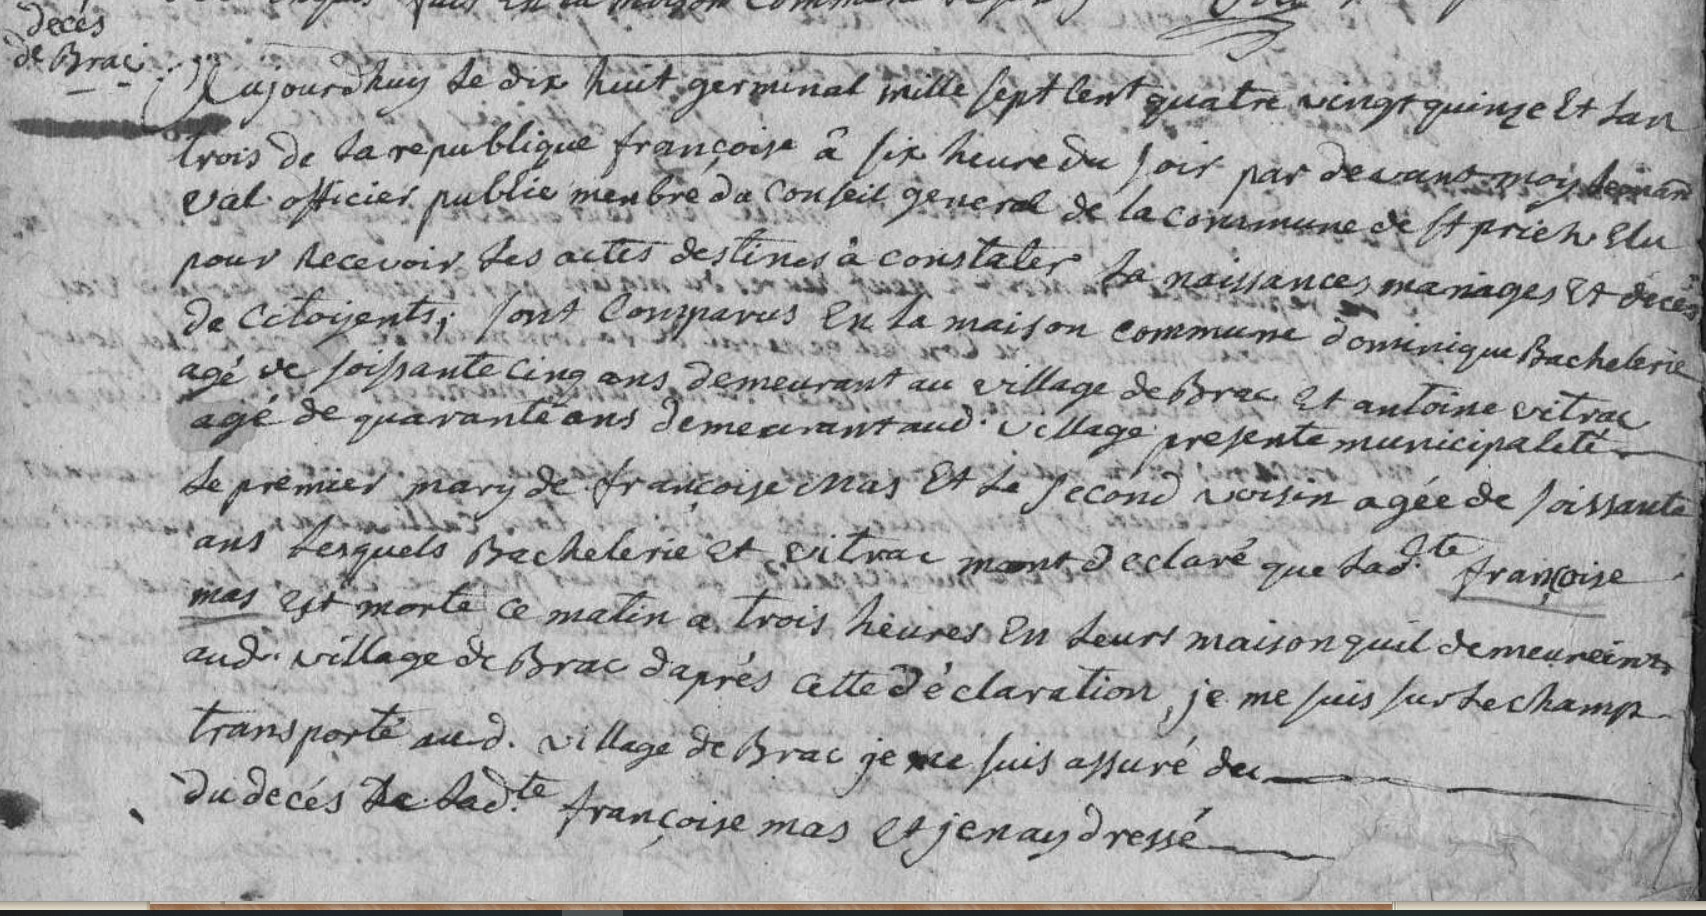 decés
de Brac
Aujourdhuy le dix huit germinal mille sept cent quatre vingt quinze Et lan
trois de la republique françoise à six heure du soir par devant moy
val officier public menbre du conseil general de la commune de st priech Elu
pour recevoir les actes destinés à constater la naissances mariages Et décés
de citoijents; sont Comparus En la maison commune dominique Bachelerie
agé de soissante cinq ans demeurant au village de Brac Et antoine vitrac
agé de quarante ans demeurant aud. village presente municipalité
le premier mary de françoise mas Et le second voisin agée de soissante
ans lesquels Bachelerie et vitrac mont declaré que lad.te françoise
mas est morte ce matin a trois heures En leurs maison quil demeureint
aud. village de Brac daprés cette déclaration, je me suis sur le champ
transporté aud. village de Brac je me suis assuré du
du decés de lad.te françoise mas et jenay dressé